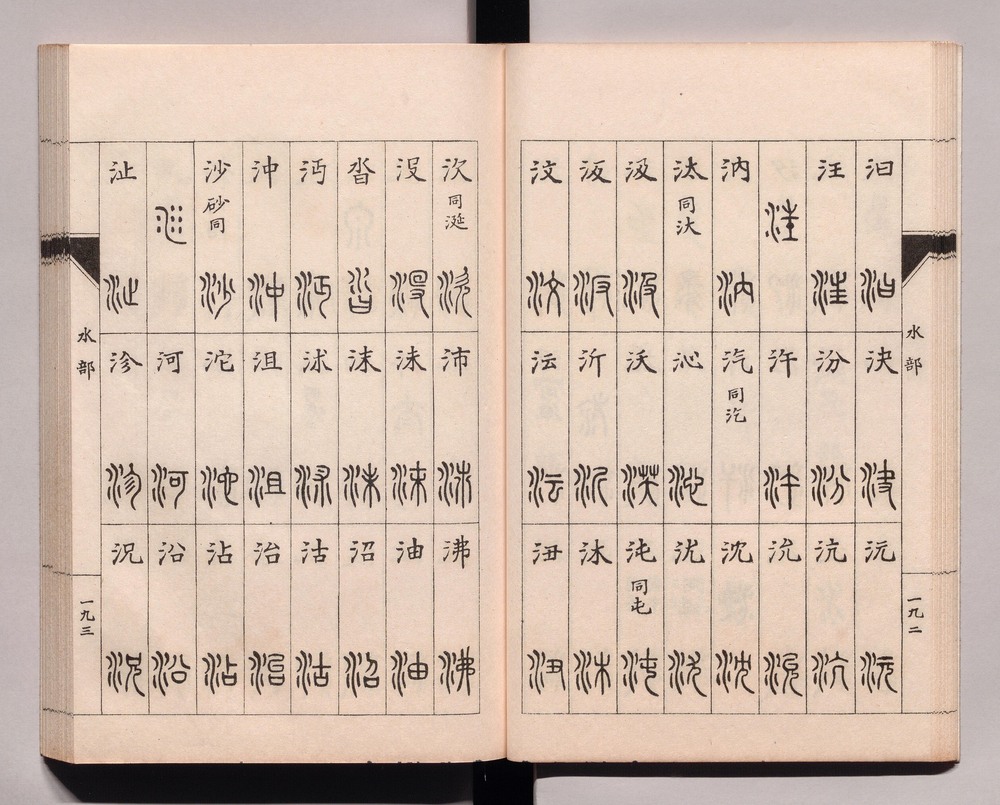 水部
一九二
汩 汪 汭 汰同汏 汲 汳 汶
決 汾 汻 汽同汔 沁 沃 沂 沄
沅 沆 沇 沈 沋 沌同屯 沐 沑
㳄同涎 没 沓 沔 沖 沙砂同 沚
沛 沬 沫 沭 沮 沱 河 沴
沸 油 沼 沽 治 沾 沿 況
水部
一九三